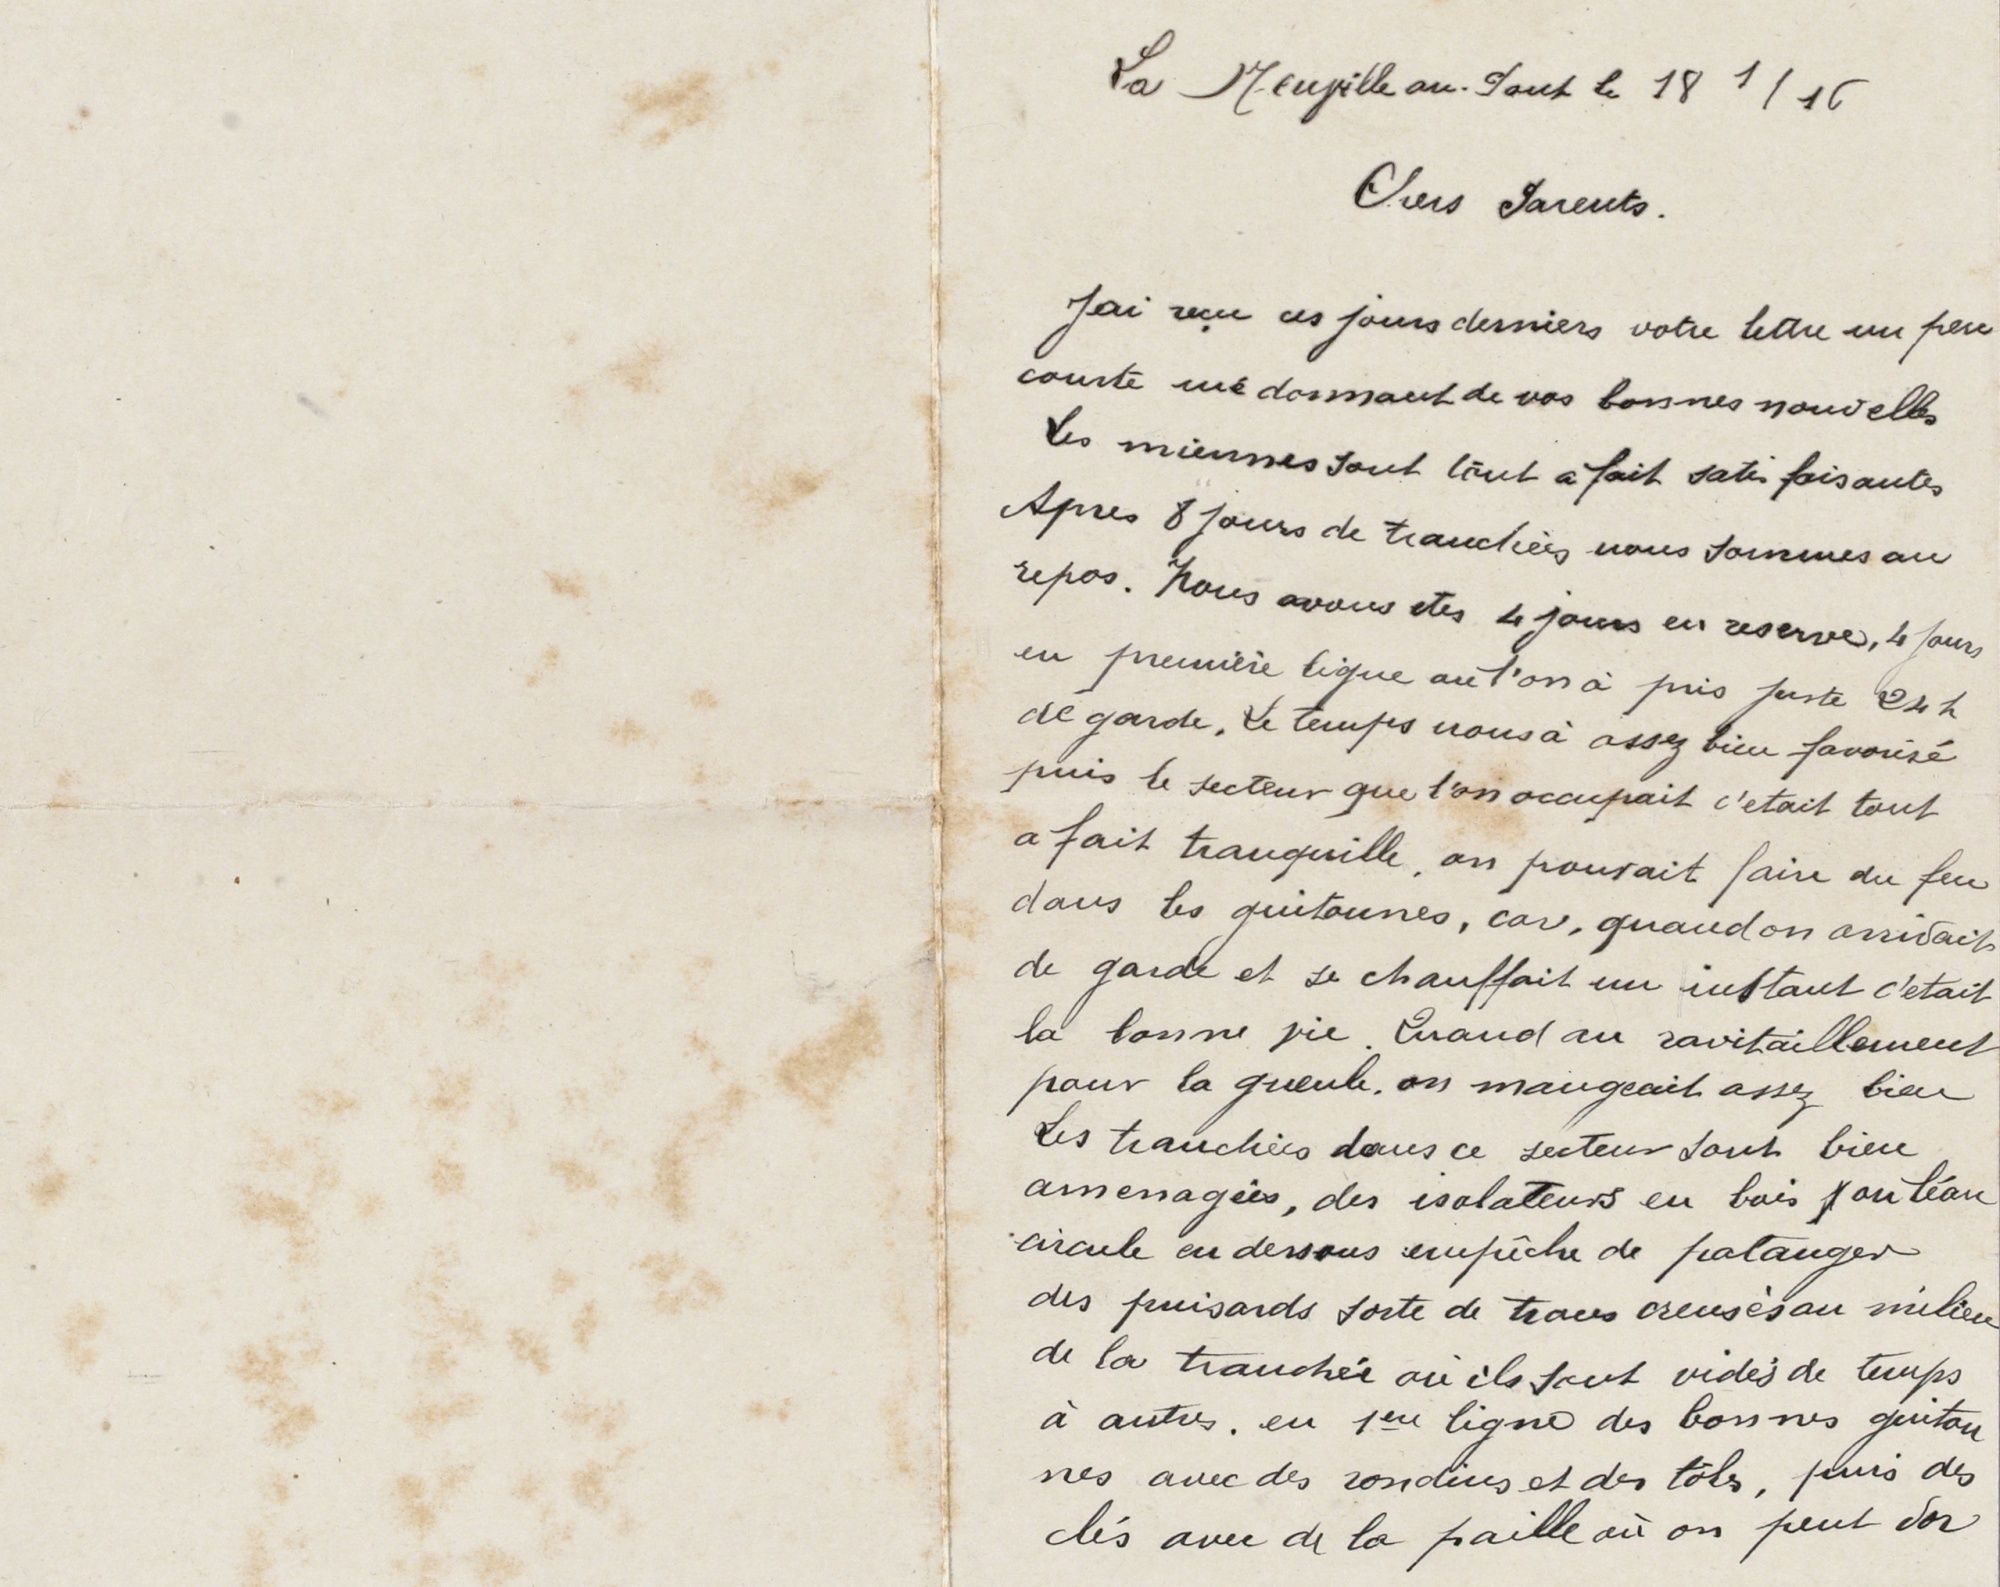 La Neuville au-Pont le 18 1/16
Chers Parents.
J'ai reçu ces jours derniers votre lettre un peu
courte me donnant de vos bonnes nouvelles
Les miennes sont tout à fait satisfaisantes
Apres 8 jours de tranchées nous sommes au
repos. Nous avons étés 4 jours en reserve, 4 jours
en première ligne où l'on à pris juste 24 h
de garde. Le temps nous à assez bien favorisé
puis le secteur que l'on occupait c'etait tout
a fait tranquille, on pouvait faire du feu
dans les guitounes, car, quand on arrivait
de garde et se chauffait un instant c'etait
la bonne vie. Quand au ravitaillement
pour la gueule. on mangeait assez bien
Les tranchées dans ce secteur sont bien
amenagées, des isolateurs en bois ou l'éau
circule en dessous empêche de patauger
des puisards sorte de trous creusés au milieu
de la tranchée où ils sont vidés de temps
à autres. en 1ere ligne des bonnes guitou
nes avec des rondins et des tôles, puis des
clés avec de la paille où on peut dor